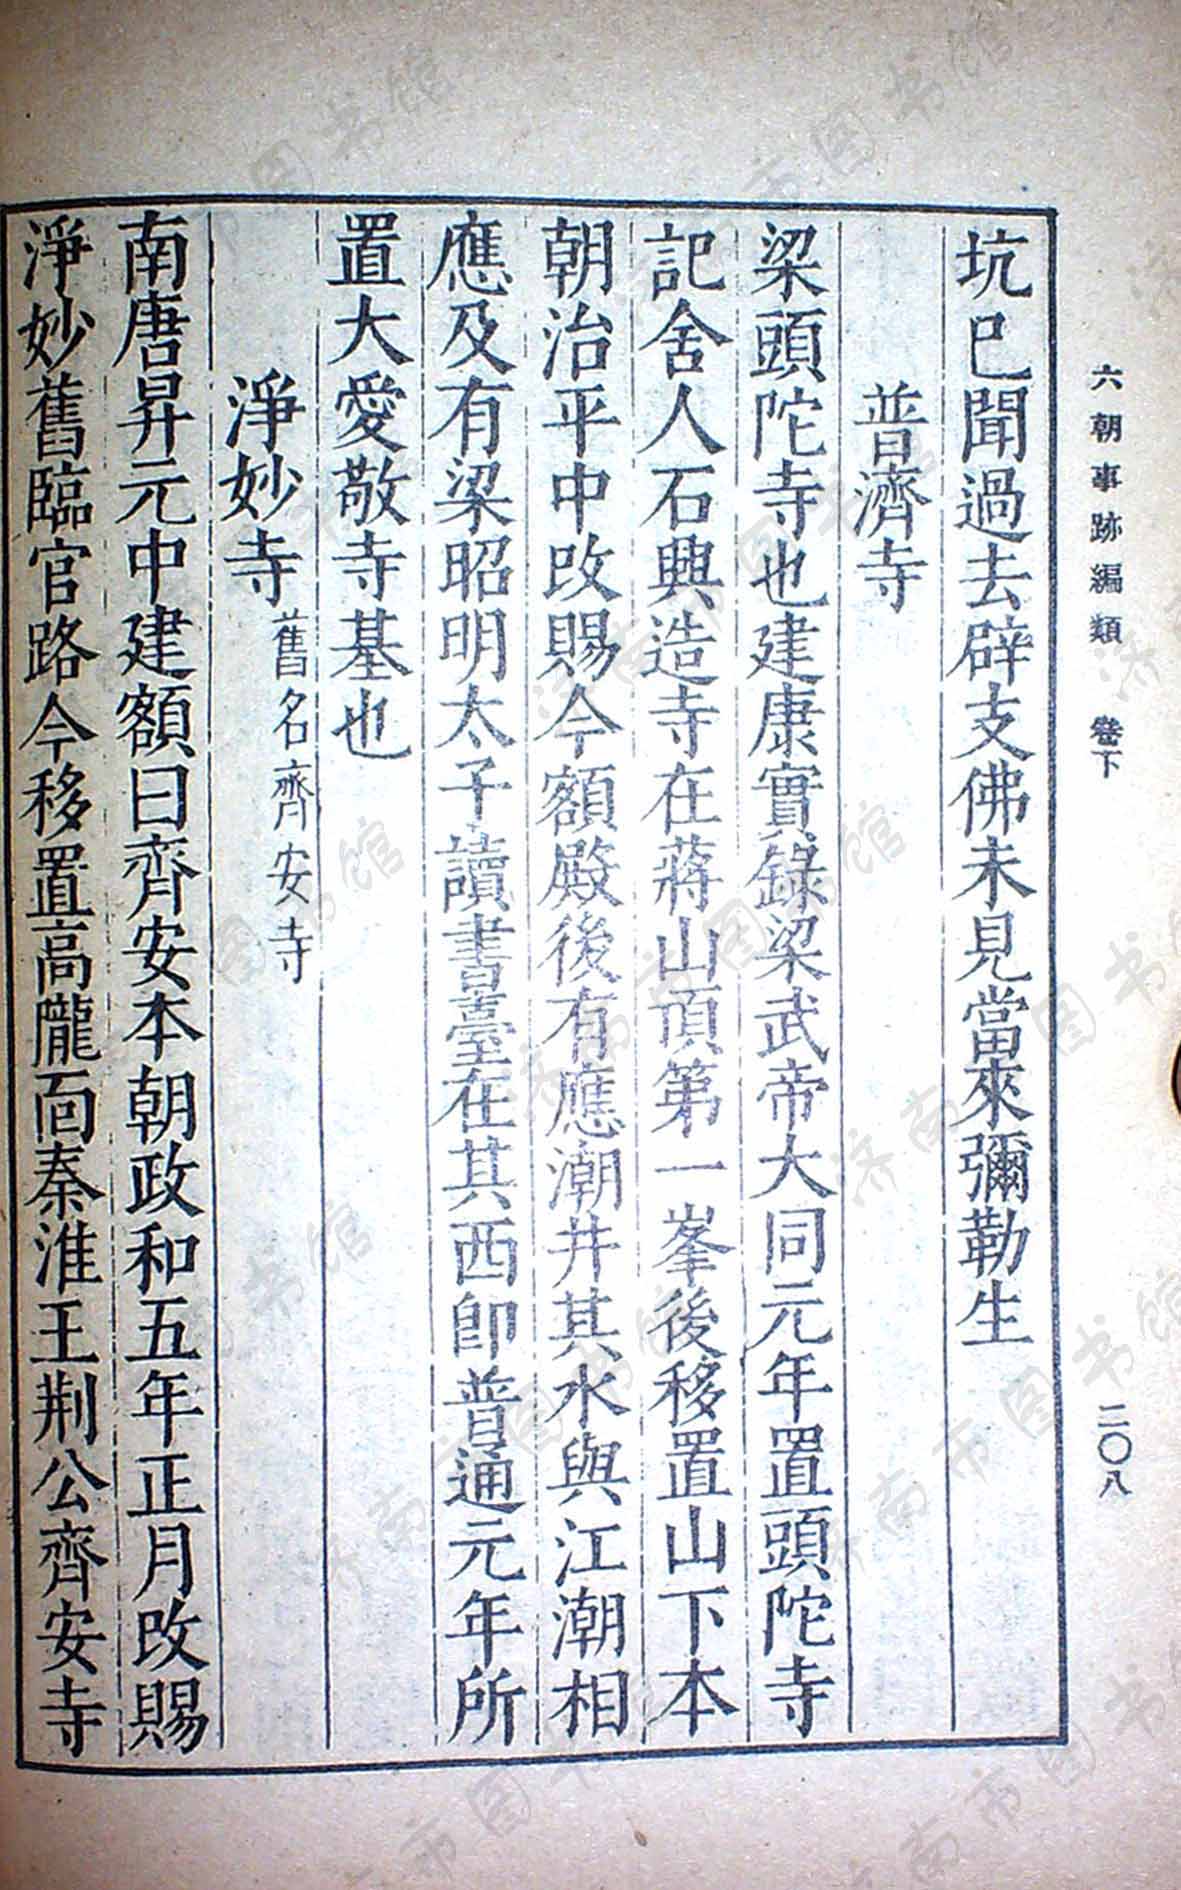 六朝事跡編類 卷下 二〇八
坑已聞過去辟支佛未見當來彌勒生
普濟寺
梁頭陀寺也建康實錄梁武帝大同元年置頭陀寺
記舍人石興造寺在蔣山頂第一峯後移置山下本
朝治平中改賜今額殿後有應潮井其水與江潮相
應及有梁昭明太子讀書臺在其西卽普通元年所
置大愛敬寺基也
淨妙寺舊名齊安寺
南唐昇元中建額曰齊安本朝政和五年正月改賜
淨妙舊臨官路今移置高隴面秦淮王荆公齊安寺
济南市图书馆